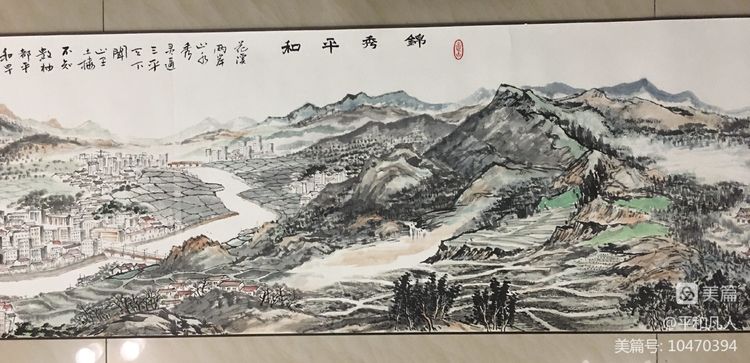 錦秀平和
花溪
两岸
山水
秀
灵通
三平
天下
闻
土楼
不知
数柚
都平
和早
美篇
@平和凡人
美篇号: 10470394